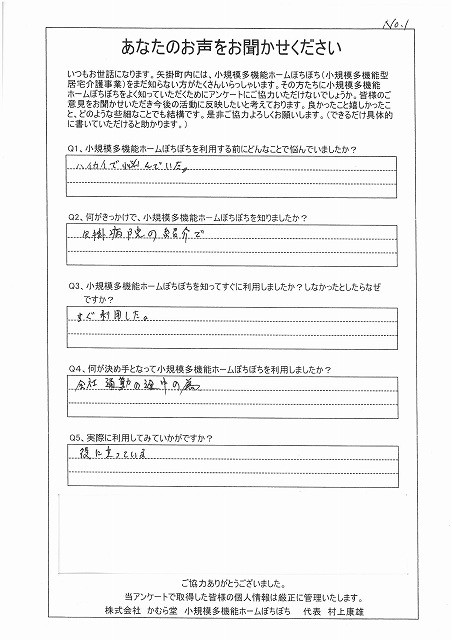 No.1
あなたのお声をお聞かせください
いつもお世話になります。矢掛町内には、小規模多機能ホームぽちぽち(小規模多機能型
居宅介護事業)をまだ知らない方がたくさんいらっしゃいます。その方たちに小規模多機能
ホームぽちぽちをよく知っていただくためにアンケートにご協力いただけないでしょうか。皆様のご
意見をお聞かせいただき今後の活動に反映したいと考えております。良かったこと嬉しかったこ
と、どのような些細なことでも結構です。是非ご協力よろしくお願いします。(できるだけ具体的
に書いていただけると助かります。)
Q1、小規模多機能ホームぽちぽちを利用する前にどんなことで悩んでいましたか?
ハイカイで悩んでいた。
Q2、何がきっかけで、小規模多機能ホームぽちぽちを知りましたか?
矢掛病院の紹介で
Q3、小規模多機能ホームぽちぽちを知ってすぐに利用しましたか?しなかったとしたらなぜ
ですか?
すぐ利用した。
Q4、何が決め手となって小規模多機能ホームぽちぽちを利用しましたか?
会社通勤の途中の為
Q5、実際に利用してみていかがですか?
役に立っていま
ご協力ありがとうございました。
当アンケートで取得した皆様の個人情報は厳正に管理いたします。
株式会社 かむら堂 小規模多機能ホームぽちぽち 代表 村上康雄